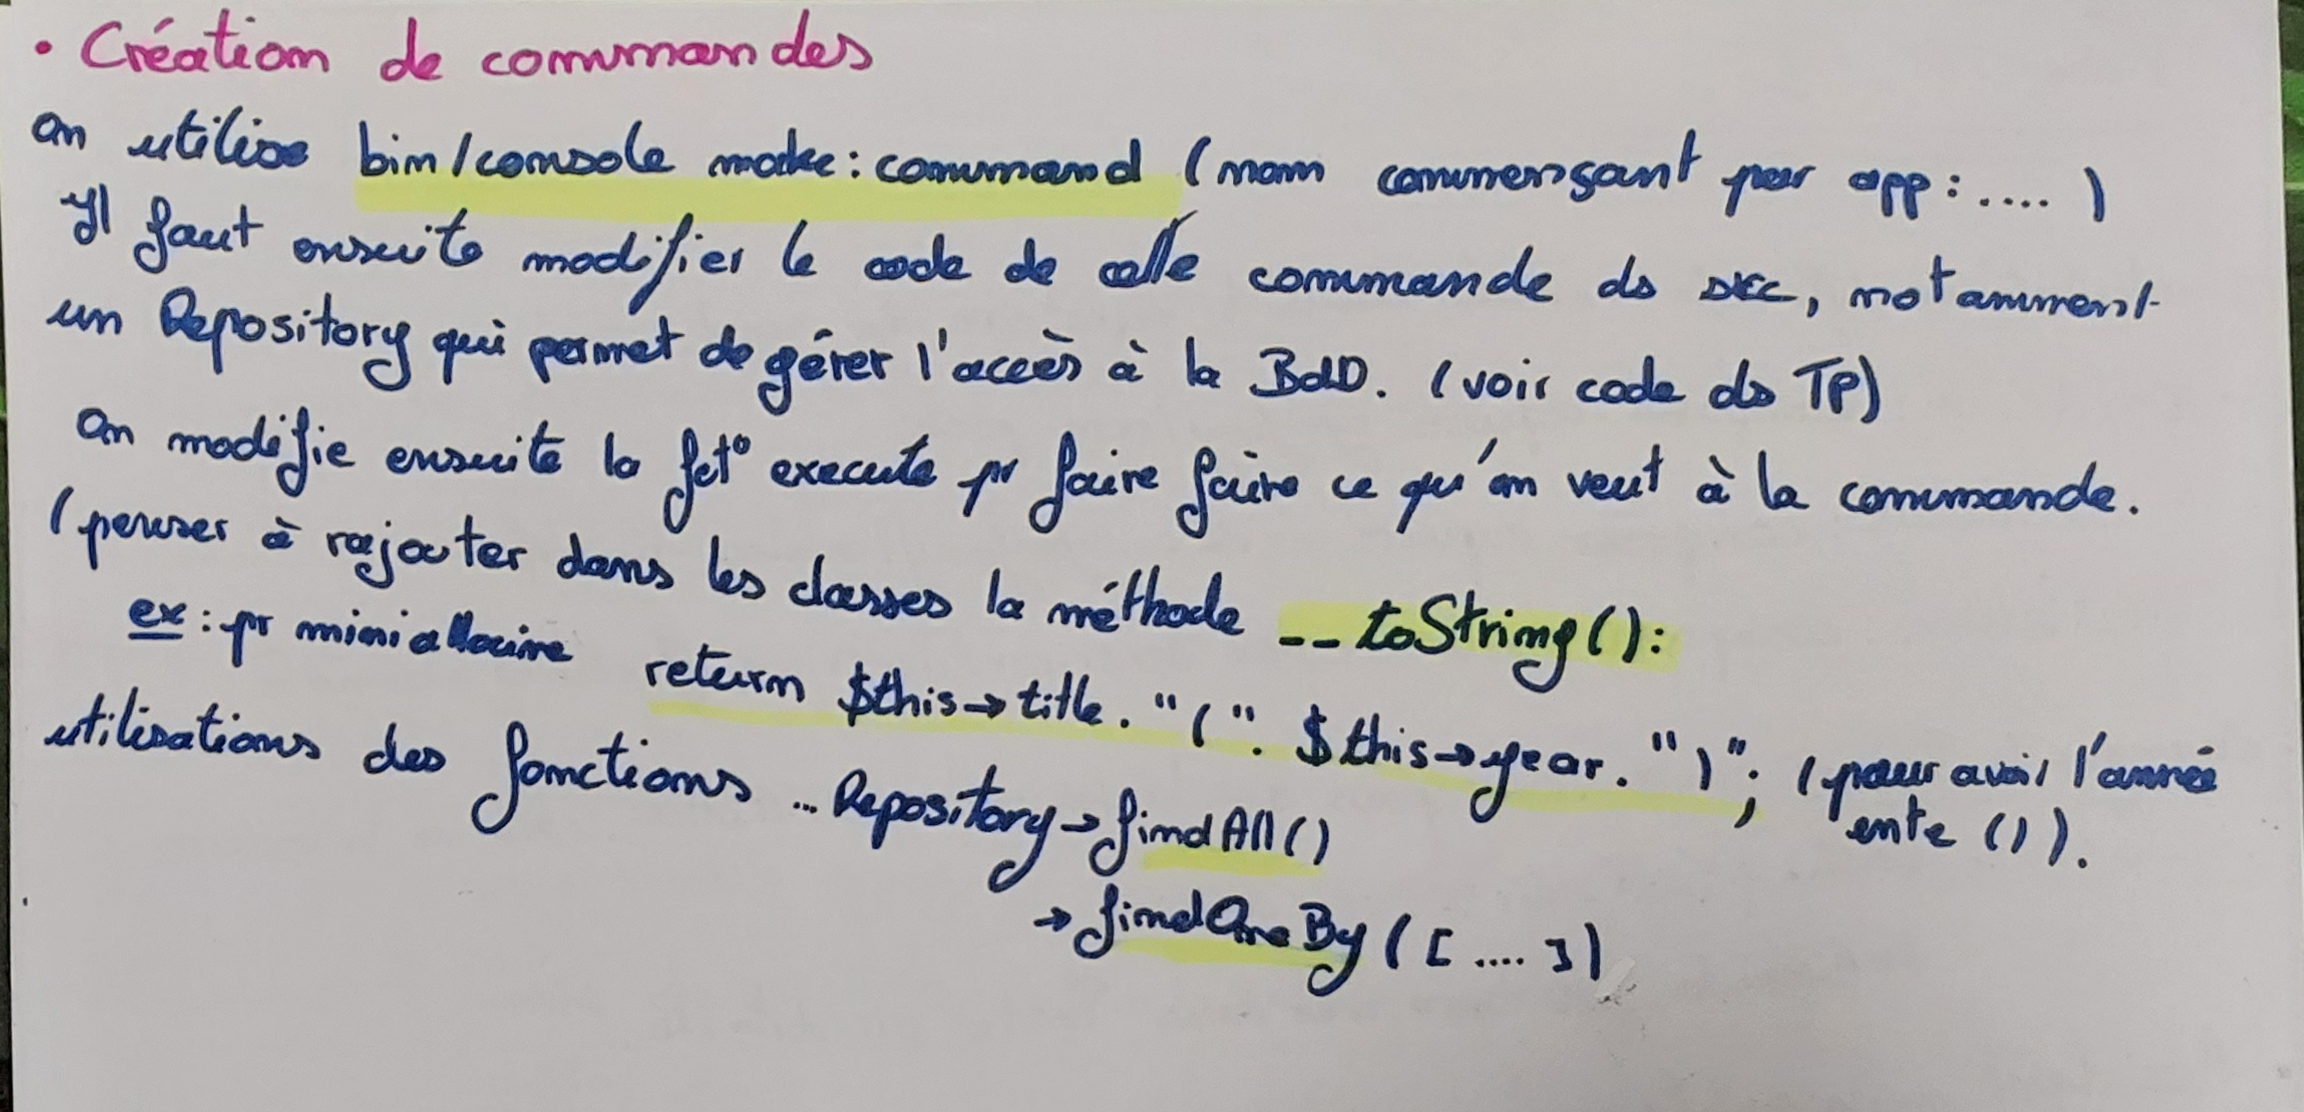 • Création de commandes
on utilise bin/console make:command (nom commençant par app:....)
Il faut ensuite modifier le code de celle commande ds src, notamment
un Repository qui permet de gérer l'accès à la BdD. (voir code ds TP)
On modifie ensuite la fct° execute pr faire faire ce qu'on veut à la commande.
(penser à rajouter dans les classes la méthode __toString():
ex: pr miniallocine return $this→title."(".$this→year.")"; (pour avoir l'année
entre ()).
utilisations des fonctions ...Repository→findAll()
→findOneBy([....])